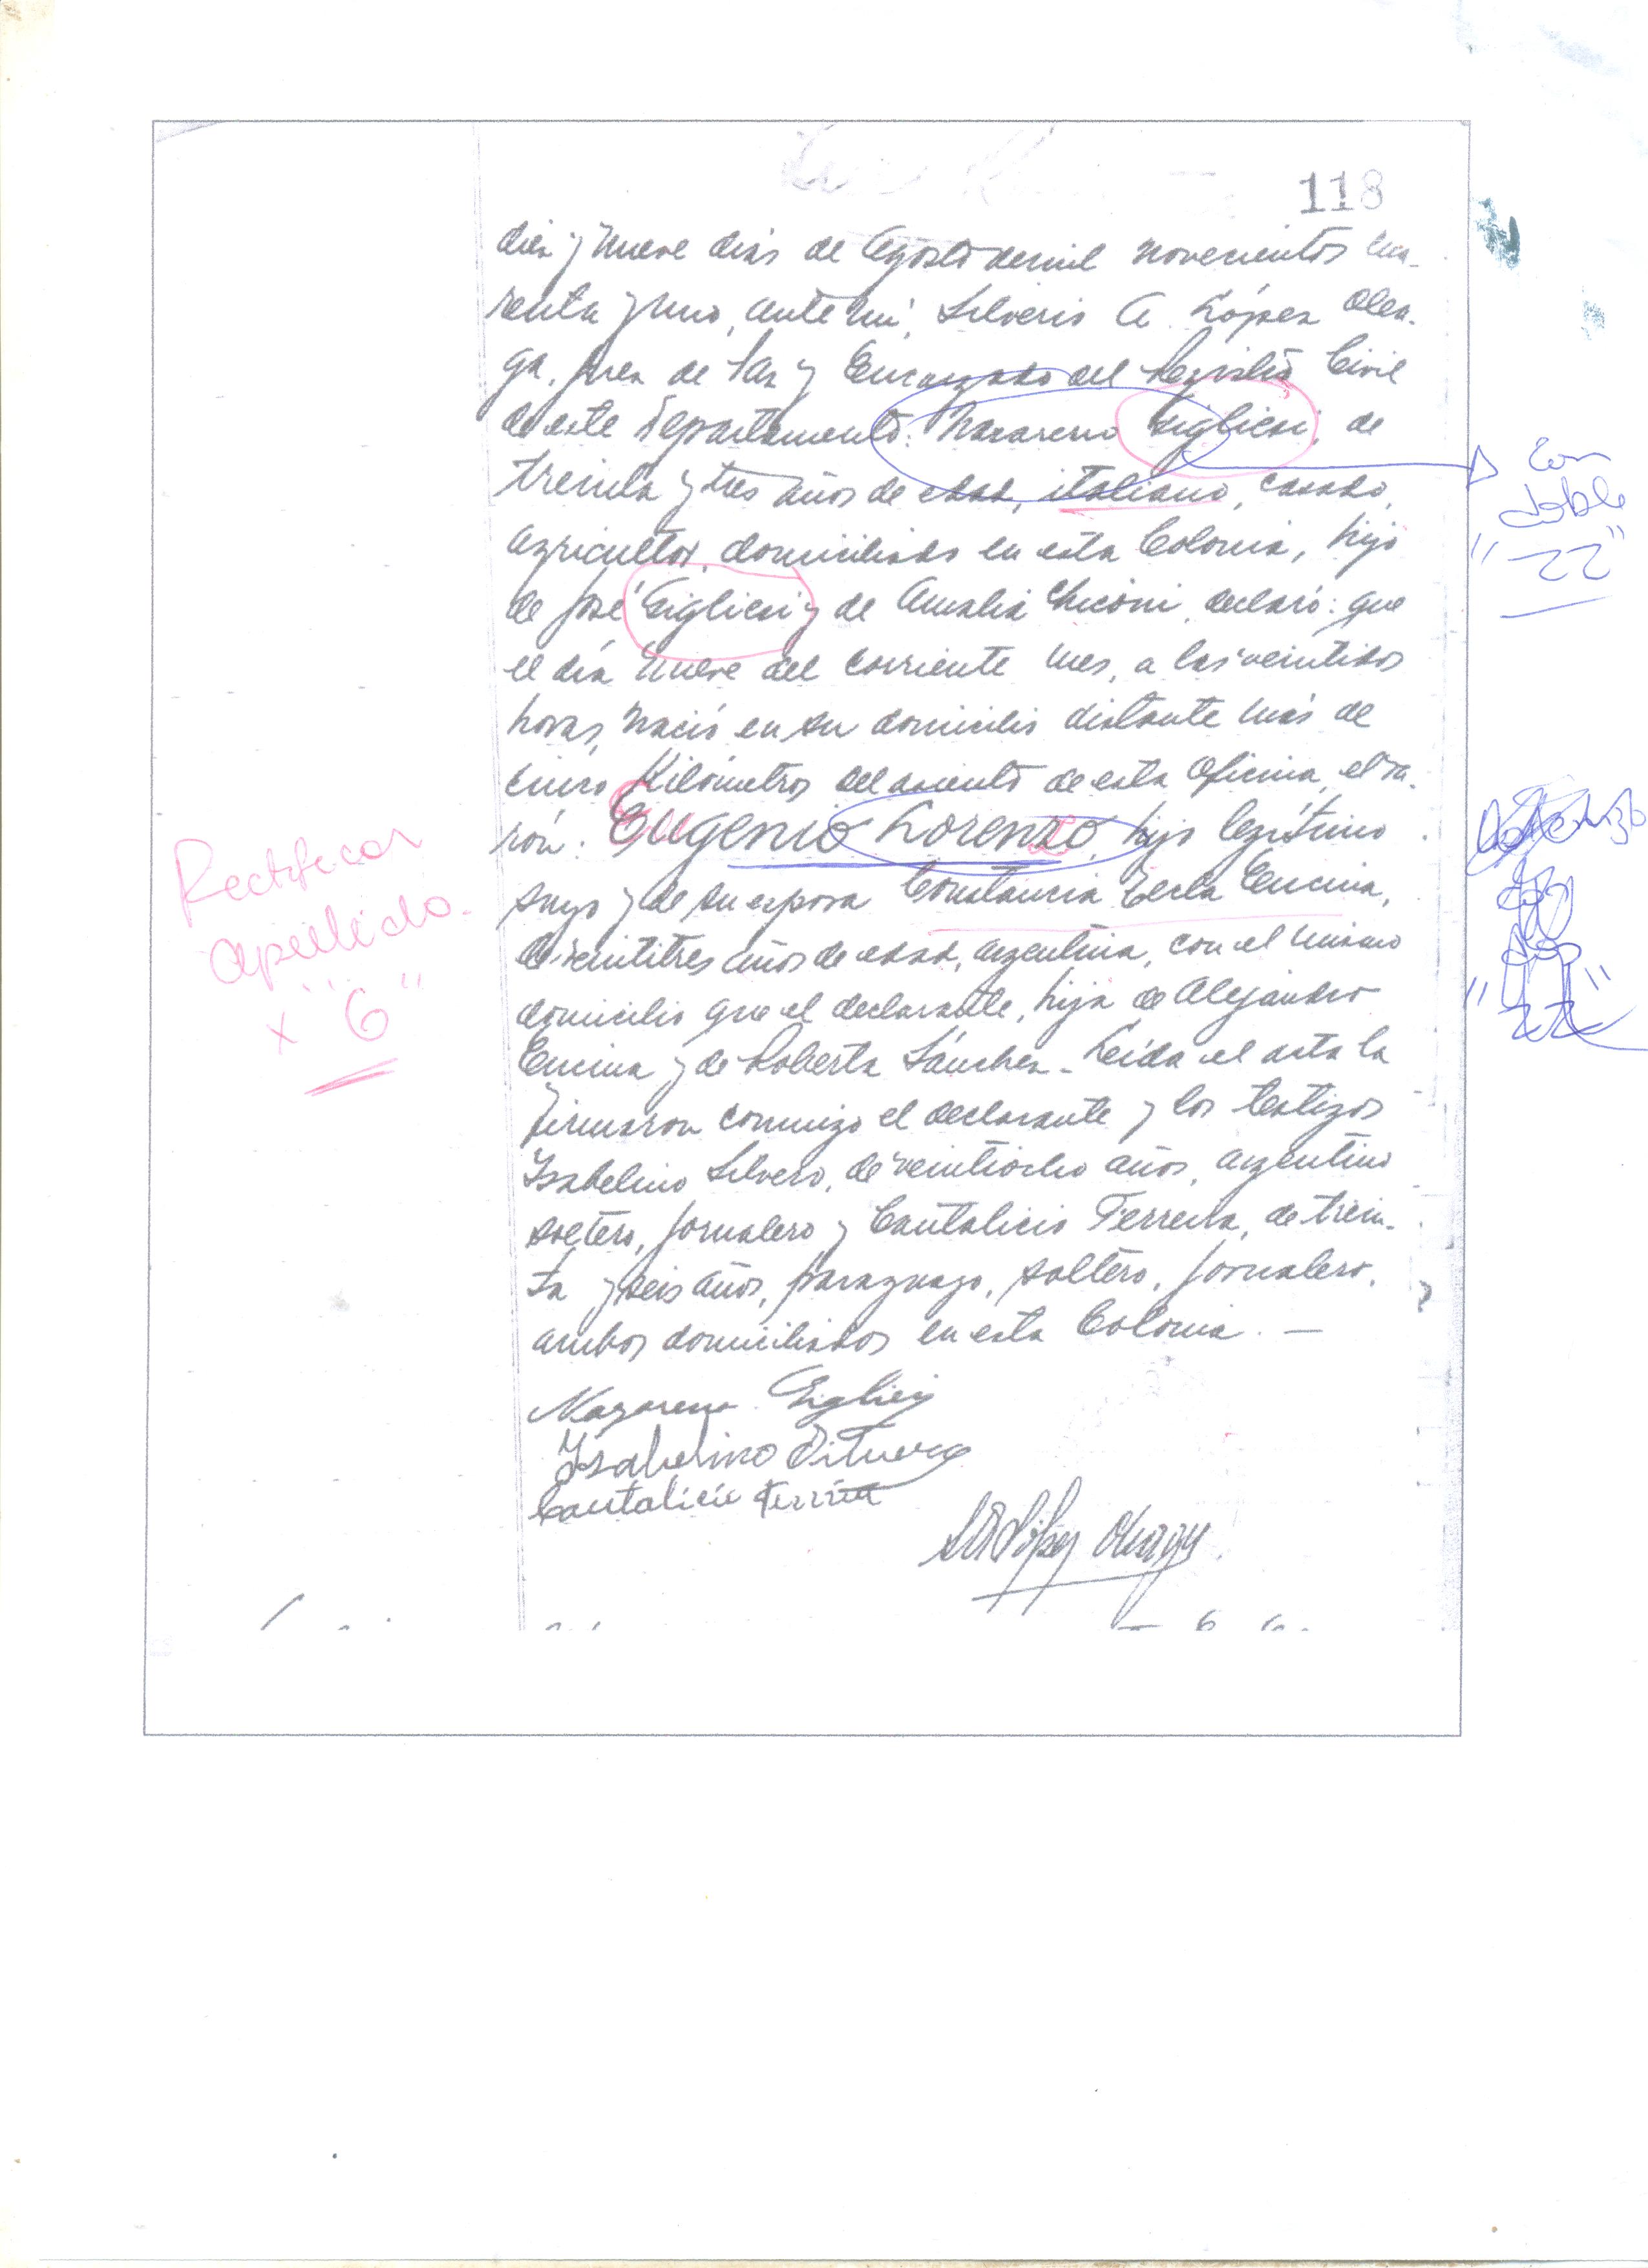 118
diez y nueve días de Agosto de mil novecientos cua-
renta y uno, ante mí, Silverio A. López Olea-
ga, Juez de Paz y Encargado del Registro Civil
de este Departamento: Nazareno Giglieri, de
treinta y tres años de edad, italiano, casado,
agricultor, domiciliado en esta Colonia, hijo
de José y de Amalia declaró: que
el día nueve del corriente mes, a las veintidos
horas, nació en su domicilio distante más de
cinco Kilómetros del asiento de esta Oficina, el va-
rón: Eugenio Lorenzo, hijo legítimo
suyo y de su esposa Constancia Tecla Encina,
de veintitres años de edad, argentina, con el mismo
domicilio que el declarante, hija de Alejandro
Encina y de Roberta Sánchez.- Leída el acta la
firmaron conmigo el declarante y los testigos
Isabelino Silvero, de veintiocho años, argentino
soltero, jornalero y Cantalicio Ferreira, de trein-
ta y seis años, paraguayo, soltero, jornalero,
ambos domiciliados en esta Colonia. —
Nazareno
Isabelino
Cantalicio
López
Rectificar
apellido.
x "G"
con
doble
"zz"
"zz"